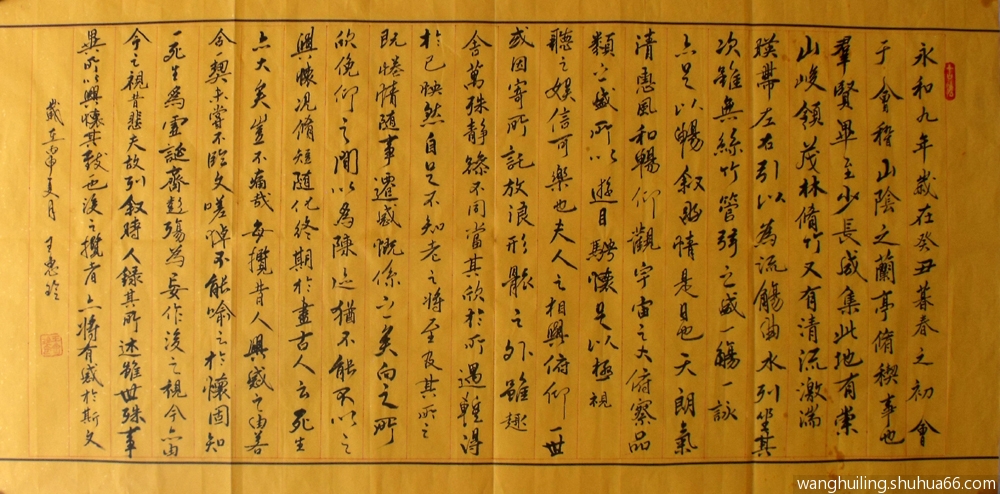 永和九年歲在癸丑暮春之初會
于會稽山陰之蘭亭脩稧事也
羣賢畢至少長咸集此地有崇
山峻領茂林脩竹又有清流激湍
暎帶左右引以為流觴曲水列坐其
次雖無絲竹管弦之盛一觴一詠
亦足以暢叙幽情是日也天朗氣
清惠風和暢仰觀宇宙之大俯察品
類之盛所以遊目騁懷足以極視
聽之娛信可樂也夫人之相與俯仰一世
或因寄所託放浪形骸之外雖趣
舍萬殊靜躁不同當其欣於所遇暫得
於己快然自足不知老之將至及其所之
既惓情隨事遷感慨係之矣向之所
欣俛仰之間以為陳迹猶不能不以之
興懷況脩短隨化終期於盡古人云死生
亦大矣豈不痛哉每攬昔人興感之由若
合契未嘗不臨文嗟悼不能喻之於懷固知
一死生為虛誕齊彭殤為妄作後之視今亦由
今之視昔悲夫故列叙時人錄其所述雖世殊事
異所以興懷其致也後之攬者亦將有感於斯文
歲在丙申夏月 王惠玲
wanghuiling.shuhua66.com